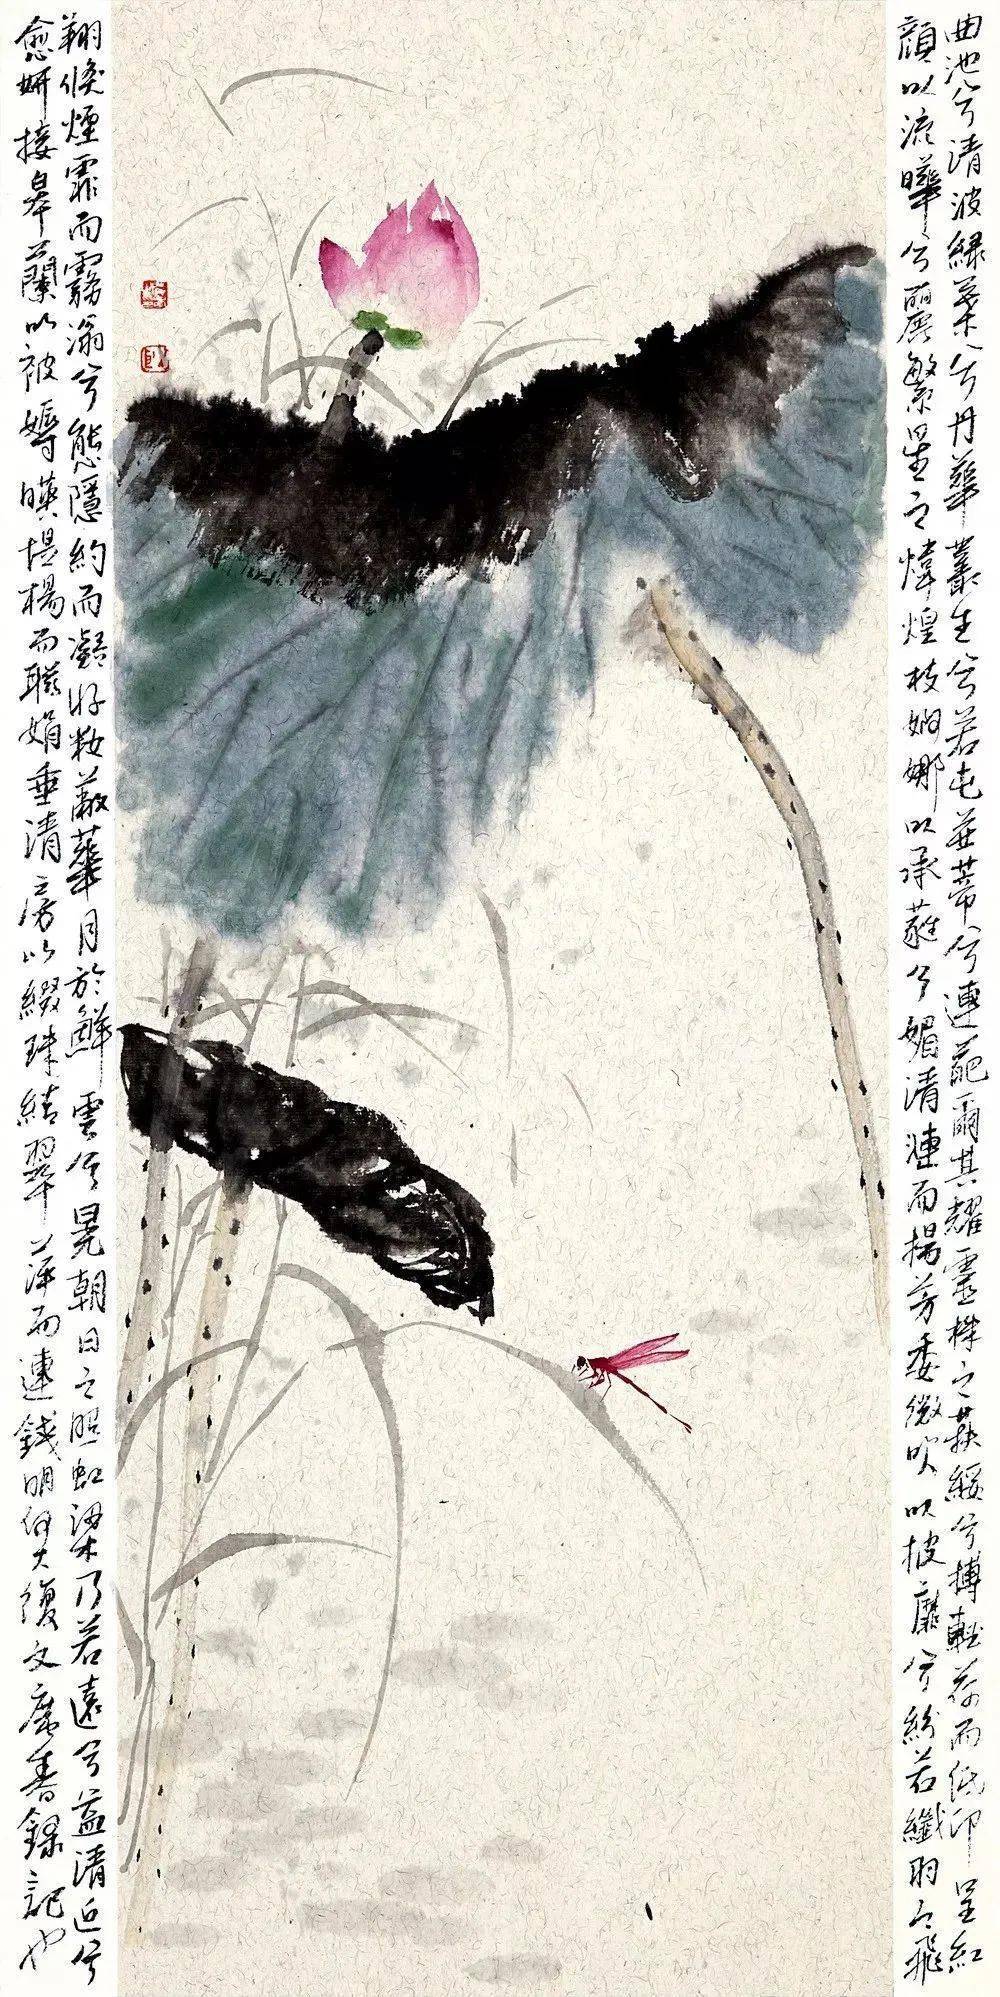 曲池兮清波緑葉兮丹華叢生兮若屯並蒂兮連葩爾其耀靈樑之蕤綏兮搏輕荷而低卬呈紅
顔以流曄兮麗繁星之煒煌枝婀娜以承蕤兮媚清漣而揚芳委微吹以披靡兮紛若纖羽之飛
翔倏煙霏而霧滃兮態隱約而凝好妝蔽華月於鮮雲兮晃朝日之照虹梁乃若遠兮益清近兮
愈妍接皋蘭以被嫮暎堤楊而聯娟垂清房以綴珠結翠萍而連錢明何大復文 書錄記也